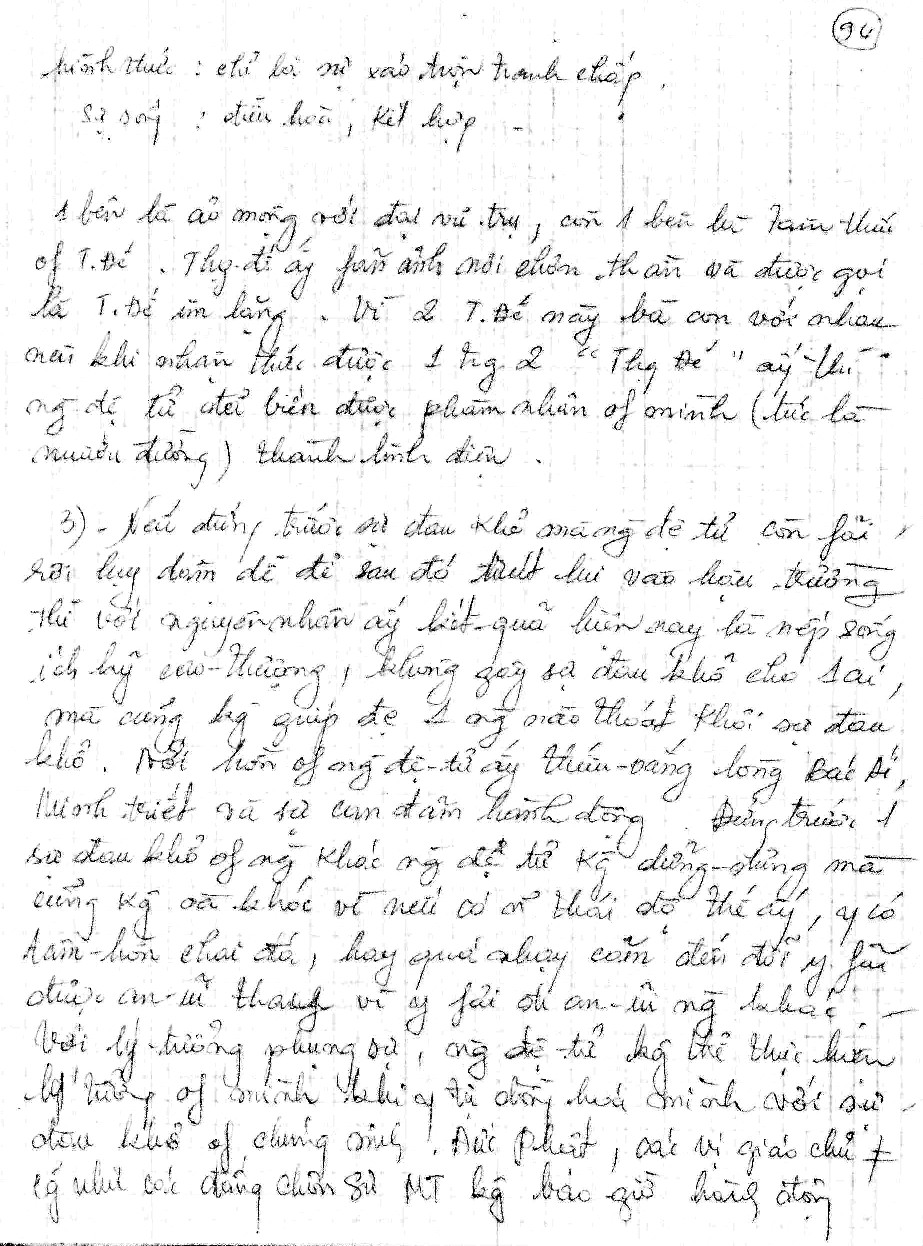 94
hình thức : chỉ là sự xáo trộn tranh chấp .
sự sống : điều hoà , kết hợp -
1 bên là ảo mộng với đại vũ trụ , còn 1 bên là Tam thức
of T.Đế . Thg. đế ấy fản ảnh nơi chơn thần và được gọi
là T. Đế im lặng . Vì 2 T.Đế này bà con với nhau
nên khi nhận thức được 1 tr.g 2 " Thg Đế " ấy thì
ng đệ tử đổi biến được phàm nhân of mình ( tức là
nuôi dưỡng ) thành linh điện .
3) - Nếu đứng trước sự đau khổ mà ng đệ tử còn fãi
rơi lụy dầm dề để sau đó rút lui vào hậu trường
thì với nguyên nhân ấy kết-quả hiện nay là nếp sống
ích kỷ cao-thượng , không gây sự đau khổ cho 1 ai ,
mà cũng kg giúp đẹ 1 ng nào thoát khỏi sự đau
khổ . Nơi hồn of ng đệ-tử ấy thiếu-vắng lòng Bác Ái ,
Minh triết và sự can đảm hành động . Đứng trước 1
sự đau khổ of ng khác ng đệ tử kg dửng-dưng mà
cũng kg oà khóc vì nếu có thái độ thế ấy , y có
tâm-hồn chai đá , hay quá nhạy cảm đến đỗi y fãi
được an-ủi thay vì y fải đi an-ủi ng khác . -
Với lý-tưởng phụng sự , ng đệ-tử kg thể thực hiện
lý tưởng of mình khi y tự đồng hoá mình với sự
đau khổ of chúng sinh . Đức Phật , các vị giáo chủ ≠
cg như các đấng chơn sư MT kg bao giờ hành động